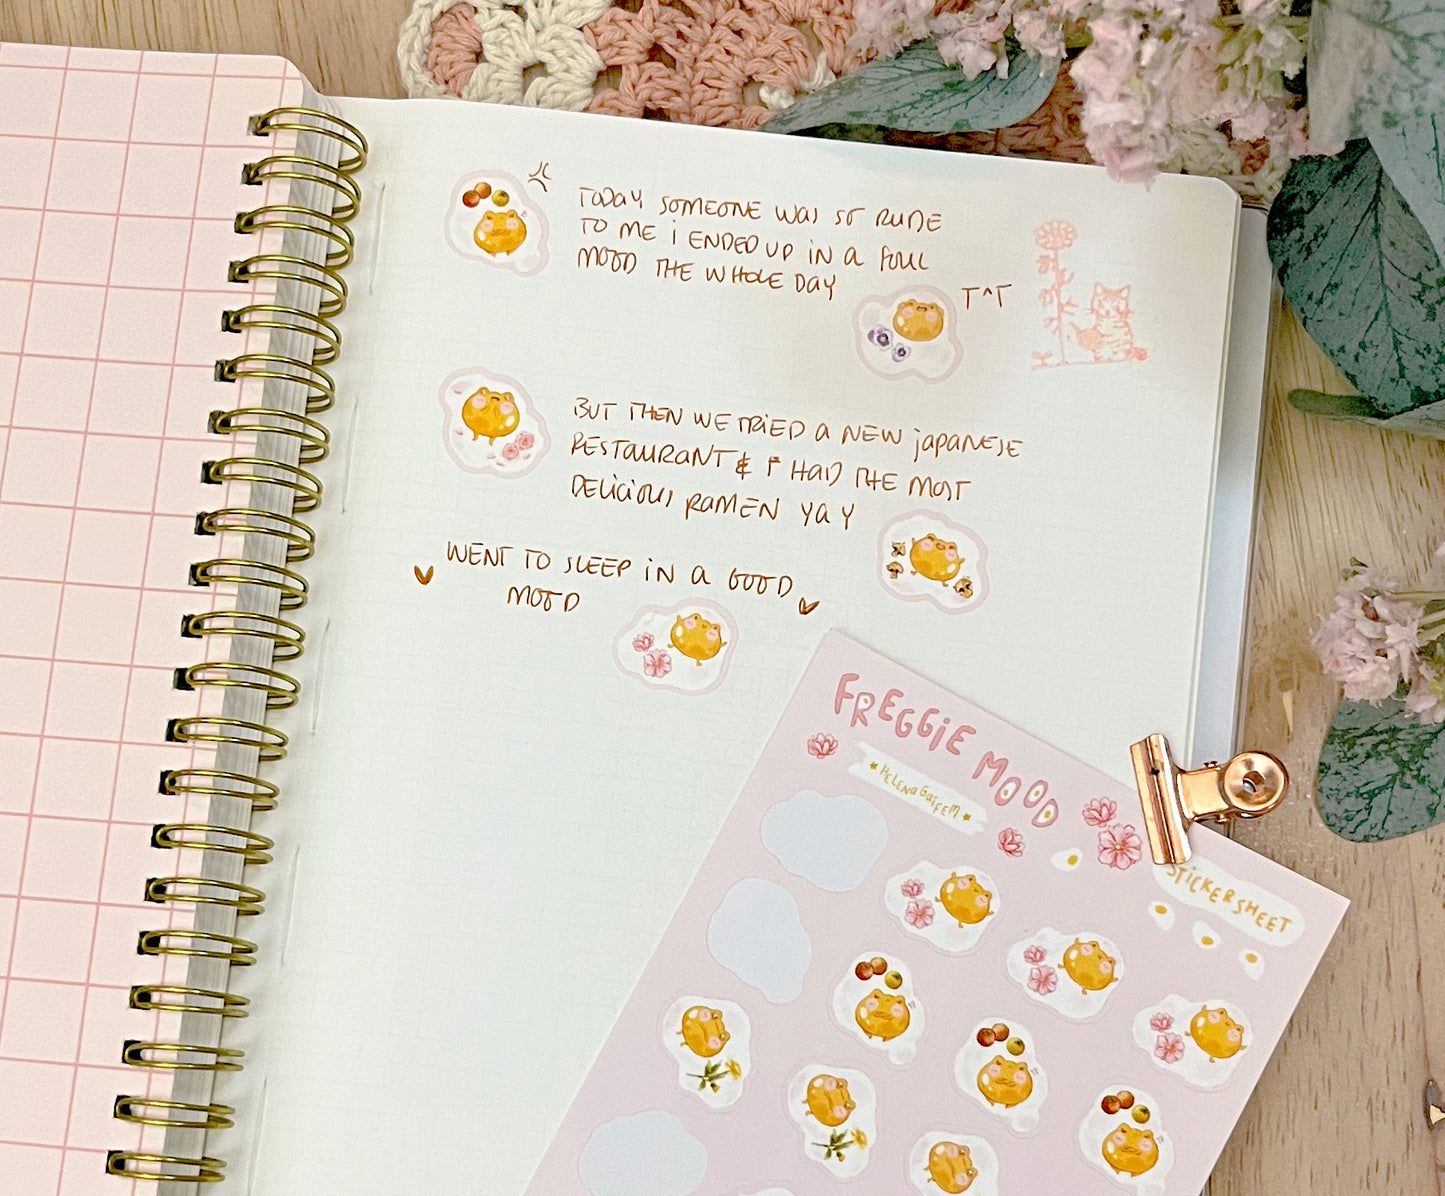 TODAY SOMEONE WAS SO RUDE
TO ME i ENDED UP IN A FOUL
MOOD THE WHOLE DAY
T^T
BUT THEN WE TRIED A NEW JAPANESE
RESTAURANT & I HAD THE MOST
DELICIOUS RAMEN YAY
WENT TO SLEEP IN A GOOD
MOOD
FREGGIE MOOD
HELENAGAIFEM
STICKERSHEET